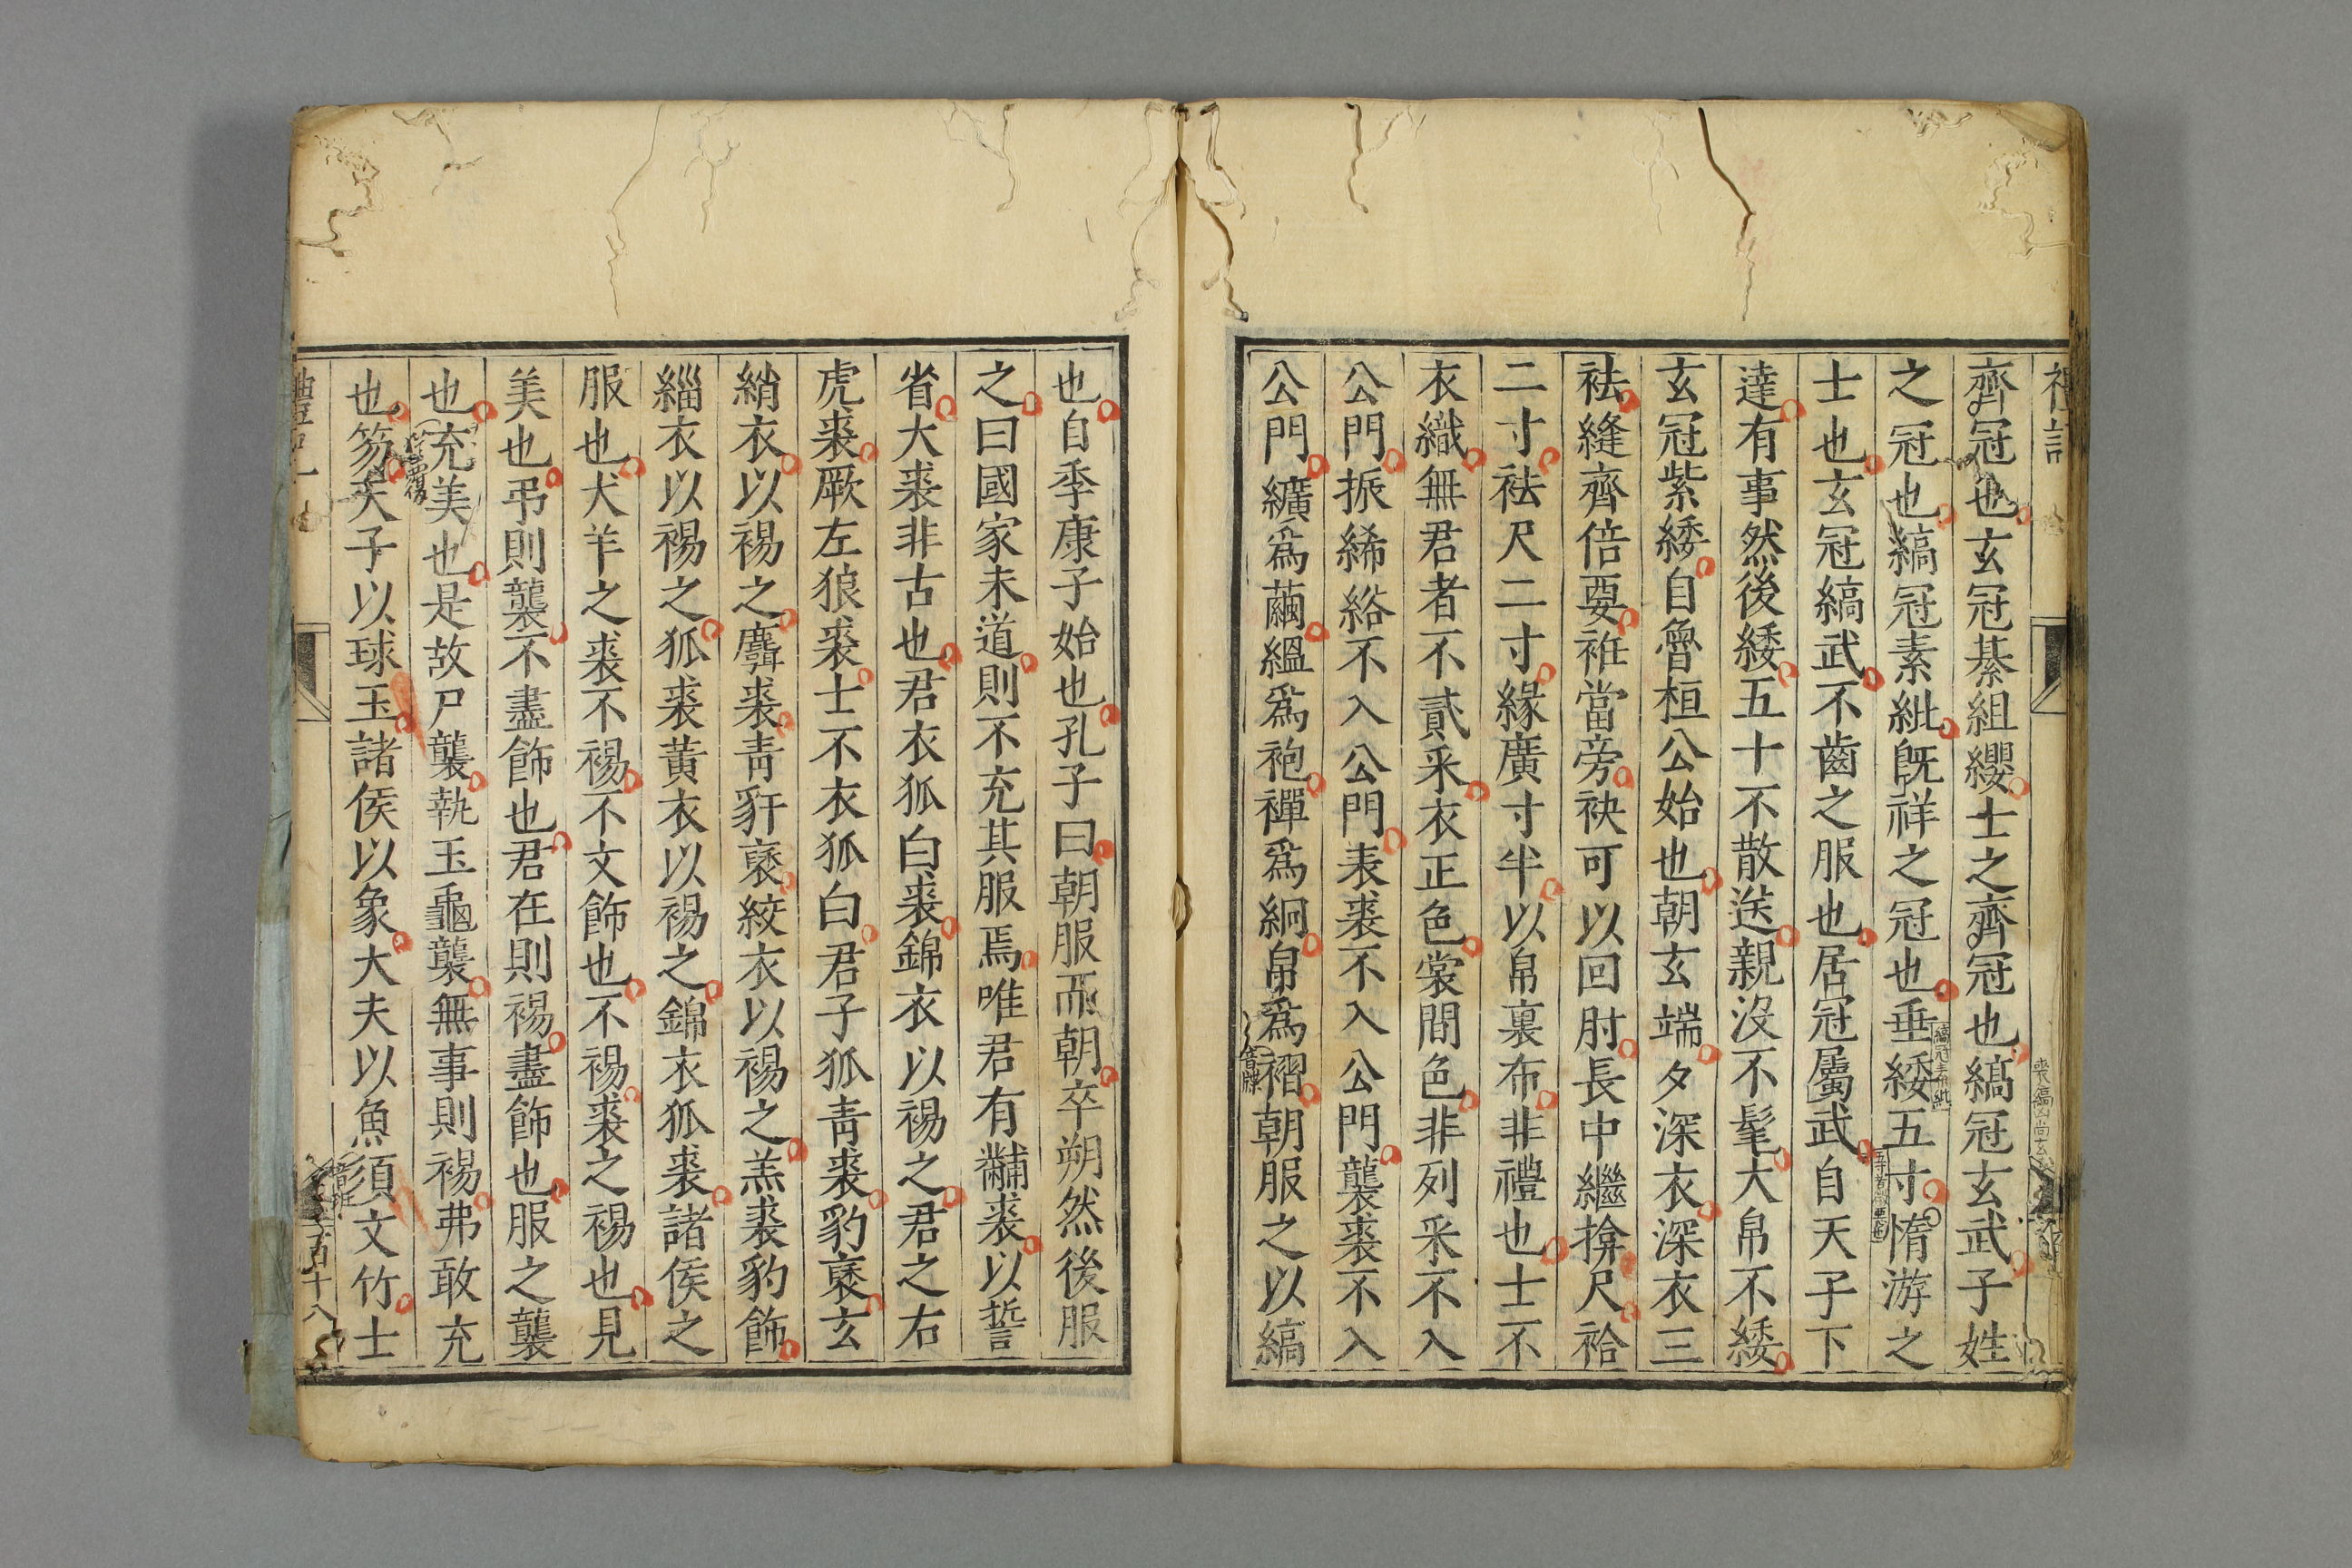 禮記
齊冠也玄冠綦組纓士之齊冠也縞冠玄武子姓
之冠也縞冠素紕既祥之冠也垂緌五寸惰游之
縞冠素紕
士也玄冠縞武不齒之服也居冠屬武自天子下
達有事然後緌五十不散送親沒不髦大帛不緌
玄冠紫緌自魯桓公始也朝玄端夕深衣深衣三
袪縫齊倍要衽當旁袂可以回肘長中繼揜尺袷
二寸袪尺二寸緣廣寸半以帛裏布非禮也士不
衣織無君者不貳采衣正色裳間色非列采不入
公門振絺綌不入公門表裘不入公門襲裘不入
公門纊爲繭縕爲袍襌爲絅帛爲褶朝服之以縞
也自季康子始也孔子曰朝服而朝卒朔然後服
之曰國家未道則不充其服焉唯君有黼裘以誓
省大裘非古也君衣狐白裘錦衣以裼之君之右
虎裘厥左狼裘士不衣狐白君子狐青裘豹褎玄
綃衣以裼之麛裘青豻褎絞衣以裼之羔裘豹飾
緇衣以裼之狐裘黃衣以裼之錦衣狐裘諸侯之
服也犬羊之裘不裼不文飾也不裼裘之裼也見
美也弔則襲不盡飾也君在則裼盡飾也服之襲
也充美也是故尸襲執玉龜襲無事則裼弗敢充
也笏天子以球玉諸侯以象大夫以魚須文竹士
禮記
百十八